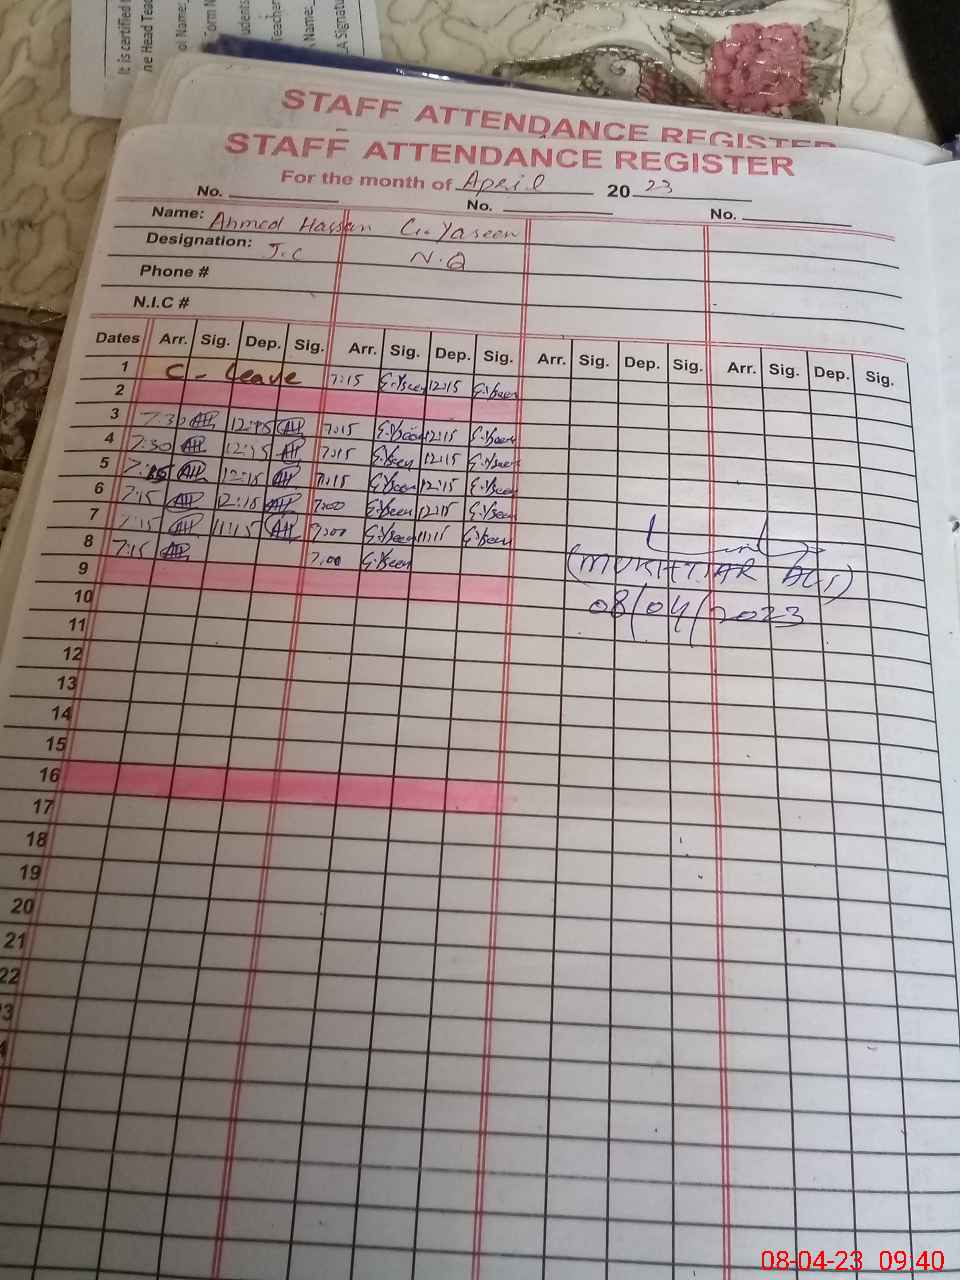 It is certified t
ne Head Teac
ol Name:
Form N
udents
Teacher
Name:
A Signatu
STAFF ATTENDANCE REGISTER
STAFF ATTENDANCE REGISTER
For the month of April 2023
No. No. No.
Name: Ahmed Hassan G. Yaseen
Designation: J.C N.Q
Phone #
N.I.C #
Dates Arr. Sig. Dep. Sig. Arr. Sig. Dep. Sig. Arr. Sig. Dep. Sig. Arr. Sig. Dep. Sig.
1 C - Leave 7:15 G.Yseen 12:15 G.Yseen
2
3 7:30 AH 12:15 AH 7:15 G.Yseen 12:15 G.Yseen
4 7:30 AH 12:15 AH 7:15 G.Yseen 12:15 G.Yseen
5 7:15 AH 12:15 AH 7:15 G.Yseen 12:15 G.Yseen
6 7:15 AH 12:15 AH 7:00 G.Yseen 12:15 G.Yseen
7 7:15 AH 11:15 AH 7:00 G.Yseen 11:15 G.Yseen
8 7:15 AH 7:00 G.Yseen
(MUKHTIAR ALI)
9
08/04/2023
10
11
12
13
14
15
16
17
18
19
20
21
22
3
4
08-04-23 09:40